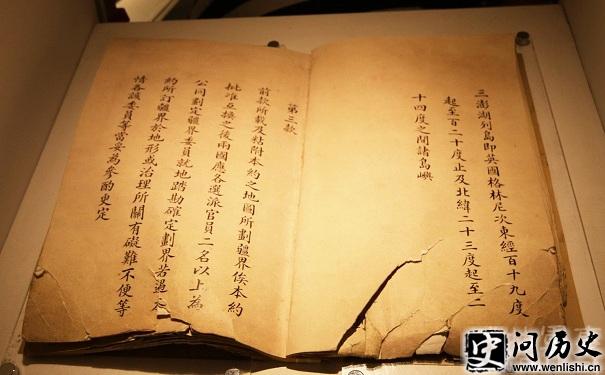 三澎湖列島即英國格林尼次東經百十九度
起至百二十度止及北緯二十三度起至二
十四度之間諸島嶼
第三款
前款所載及粘附本約之地圖所劃疆界俟本約
批准互換之後兩國應各選派官員二名以上為
公同劃定疆界委員就地踏勘確定劃界若遇本
約所訂疆界於地形或治理所關有礙難不便等
情各該委員等當妥為參酌更定
问历史
www.wenlishi.cn